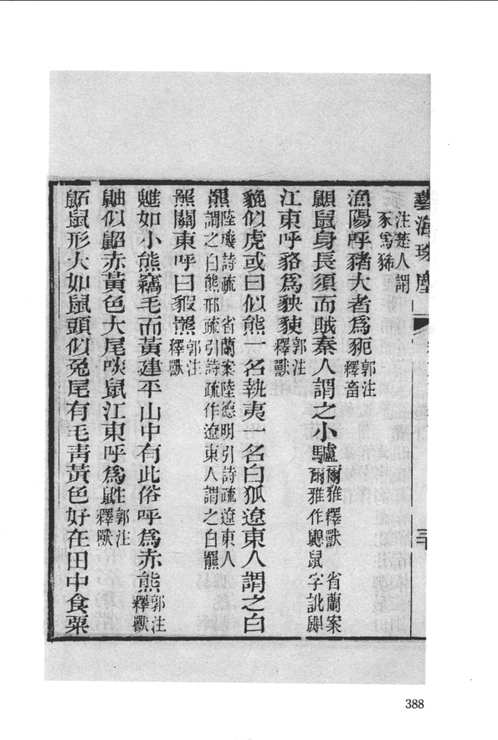 藝海珠塵
三十
注楚人謂
豕爲豨
漁陽呼豬大者爲豝郭注
釋畜
鼳鼠身長須而賊秦人謂之小驢爾雅釋獸 省蘭案
爾雅作鼳鼠字訛
江東呼貉爲𧲲𧳏郭注
釋獸
貔似虎或曰似熊一名執夷一名白狐遼東人謂之白
羆陸璣詩疏 省蘭案陸德明引詩疏遼東人
謂之白熊邢疏引詩疏作遼東人謂之白羆
羆關東呼曰貑羆郭注
釋獸
魋如小熊竊毛而黃建平山中有此俗呼爲赤熊郭注
釋獸
鼬似鼦赤黃色大尾啖鼠江東呼爲鼪郭注
釋獸
鼫鼠形大如鼠頭似兔尾有毛青黃色好在田中食粟
388